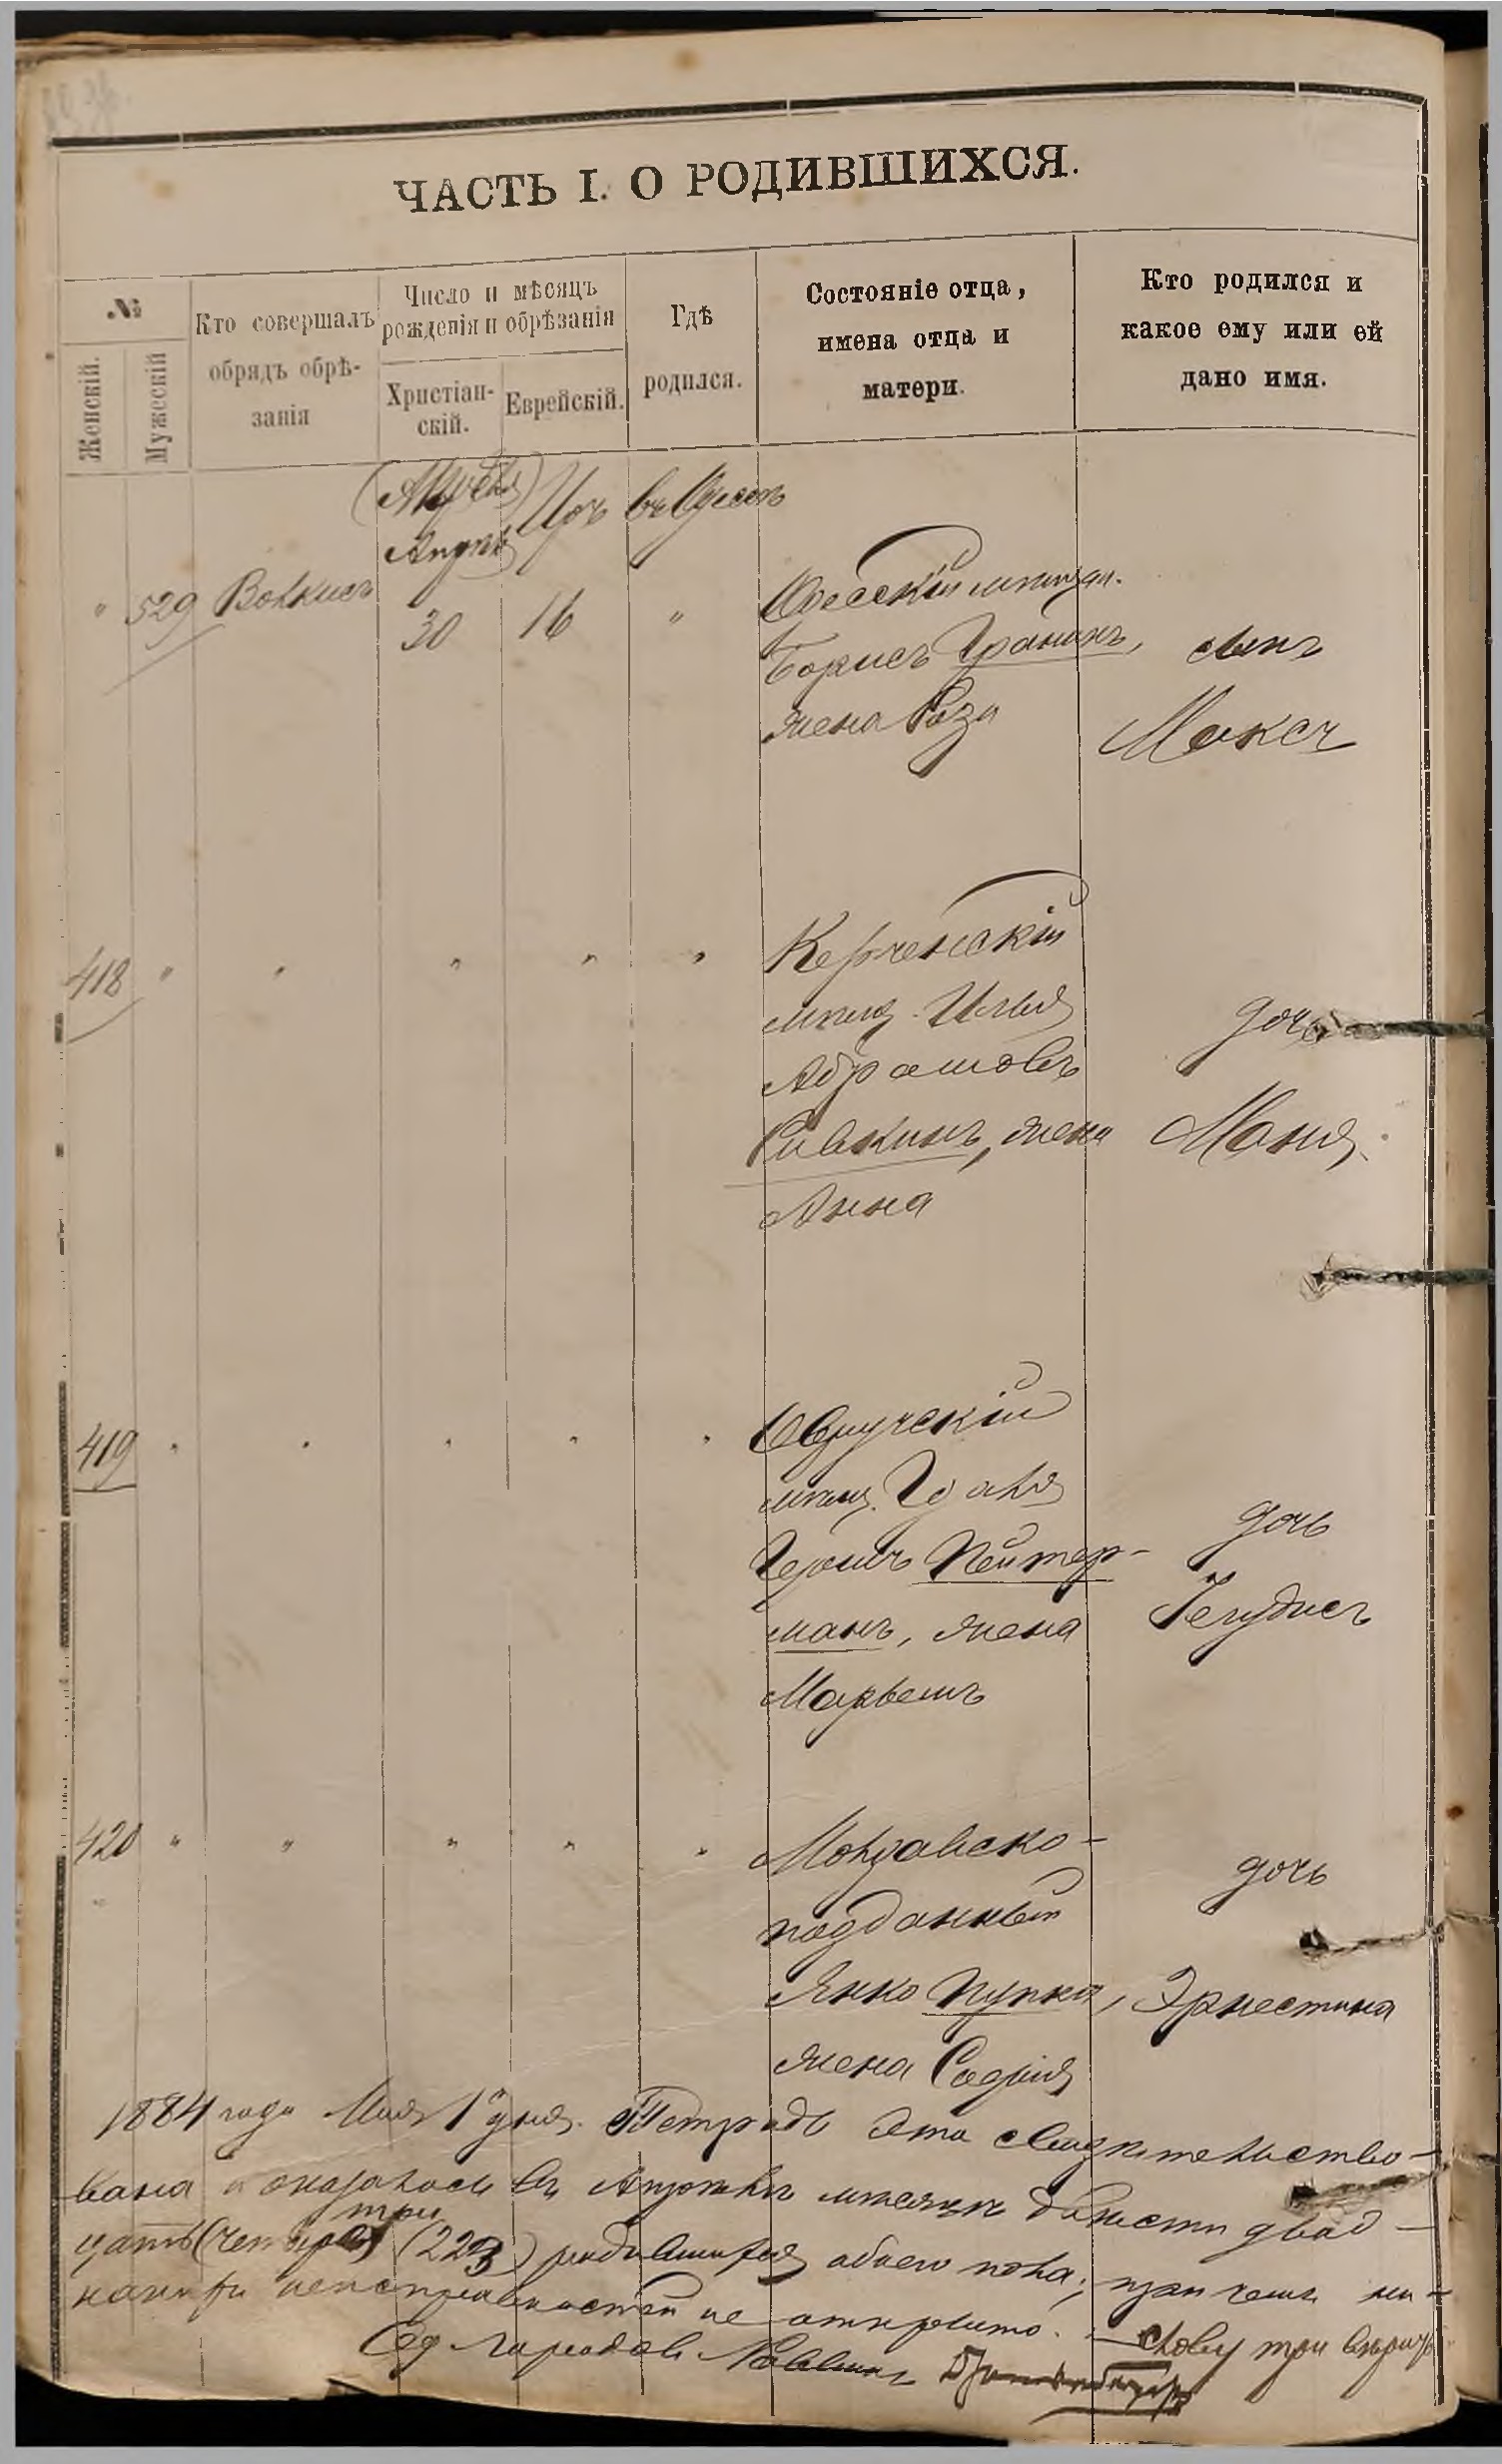 ЧАСТЬ I. О РОДИВШИХСЯ.
№
Женскій.
Мужескій
Кто совершалъ
обрядъ обрѣ-
занія
Число и мѣсяцъ
рожденія и обрѣзанія
Христіан-
скій.
Еврейскій.
Гдѣ
родился.
Состояніе отца,
имена отца и
матери.
Кто родился и
какое ему или ей
дано имя.
Апрѣ Іяръ въ Одессѣ
" 529 Волкисъ 30 16 "
Одесскій мѣщан.
Борисъ Граникъ,
жена Роза
сынъ
Максъ
418 " " " " "
Керченскій
мѣщ. Илья
Абрамовъ
Ривкинъ, жена
Анна
дочь
Маня.
419 " " " " "
Овручскій
мѣщ. Гдаля
Гершъ Пейтер-
манъ, жена
Марьемъ
дочь
Іегудисъ
420 " " " " "
Молдавско-
подданный
Янко Пупко,
жена Софія
дочь
Эрнестина
1884 года Мая 1 дня. Тетрадь эта свидѣтельство-
вана и оказалось въ Апрѣлѣ мѣсяцѣ двѣсти двад-
три
цать (четыре) (223) родившихся обоего пола; при чемъ ни-
какихъ неисправностей не открыто. — Слову три вѣрить
Од. Городовой Раввинъ